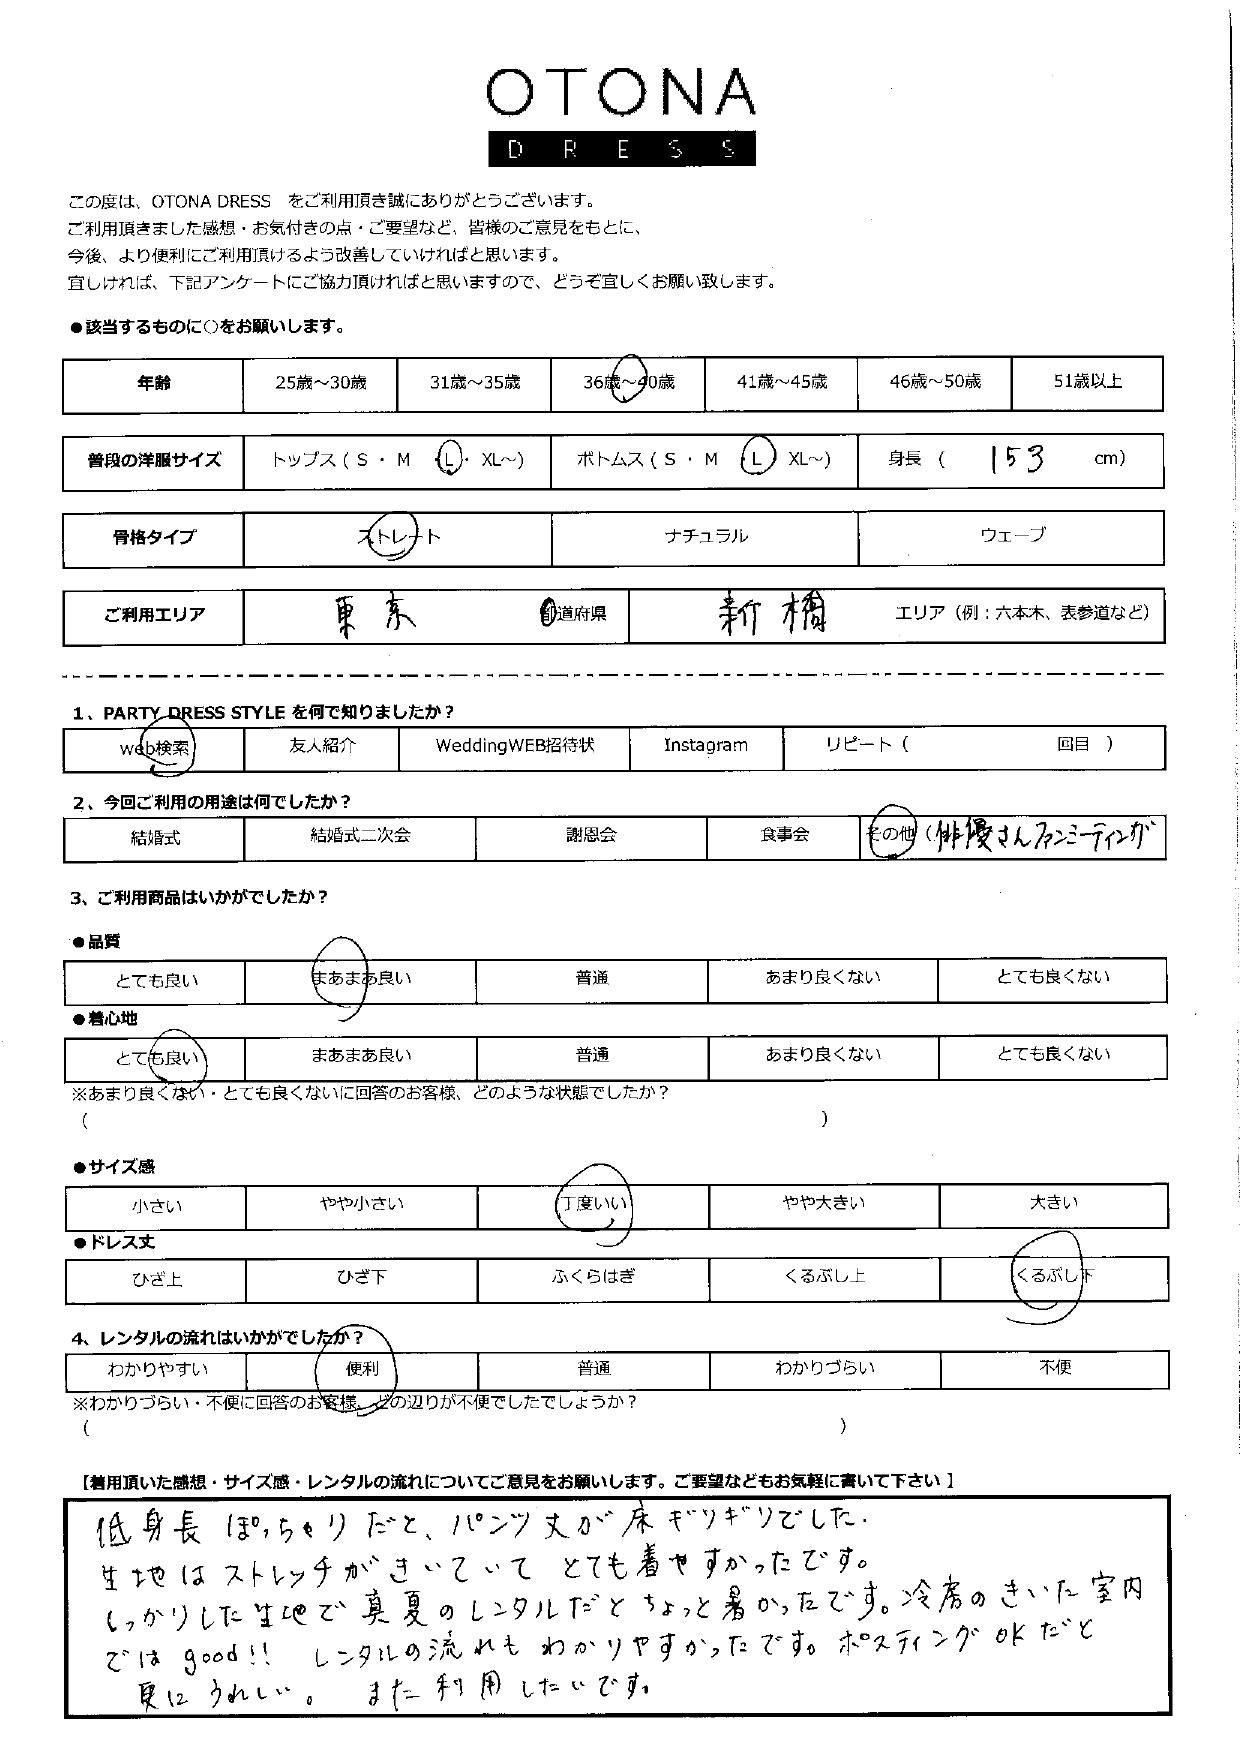 OTONA
DRESS
この度は、OTONA DRESS をご利用頂き誠にありがとうございます。
ご利用頂きました感想・お気付きの点・ご要望など、皆様のご意見をもとに、
今後、より便利にご利用頂けるよう改善していければと思います。
宜しければ、下記アンケートにご協力頂ければと思いますので、どうぞ宜しくお願い致します。
●該当するものに○をお願いします。
年齢 25歳～30歳 31歳～35歳 36歳～40歳 41歳～45歳 46歳～50歳 51歳以上
普段の洋服サイズ トップス ( S ・ M ・ L ・ XL～) ボトムス ( S ・ M ・ L XL～) 身長 ( 153 cm)
骨格タイプ ストレート ナチュラル ウェーブ
ご利用エリア 東京 都道府県 新橋 エリア（例：六本木、表参道など）
1、PARTY DRESS STYLE を何で知りましたか？
web検索 友人紹介 WeddingWEB招待状 Instagram リピート ( 回目 )
2、今回ご利用の用途は何でしたか？
結婚式 結婚式二次会 謝恩会 食事会 その他 ( 俳優さんファンミーティング
3、ご利用商品はいかがでしたか？
●品質
とても良い まあまあ良い 普通 あまり良くない とても良くない
●着心地
とても良い まあまあ良い 普通 あまり良くない とても良くない
※あまり良くない・とても良くないに回答のお客様、どのような状態でしたか？
( )
●サイズ感
小さい やや小さい 丁度いい やや大きい 大きい
●ドレス丈
ひざ上 ひざ下 ふくらはぎ くるぶし上 くるぶし下
4、レンタルの流れはいかがでしたか？
わかりやすい 便利 普通 わかりづらい 不便
※わかりづらい・不便に回答のお客様、どの辺りが不便でしたでしょうか？
( )
【着用頂いた感想・サイズ感・レンタルの流れについてご意見をお願いします。ご要望などもお気軽に書いて下さい 】
低身長ぽっちゃりだと、パンツ丈が床ギリギリでした.
生地はストレッチがきいていてとても着やすかったです。
しっかりした生地で真夏のレンタルだとちょっと暑かったです。冷房のきいた室内
ではgood!! レンタルの流れもわかりやすかったです。ポスティングOKだと
更にうれしい。また利用したいです。